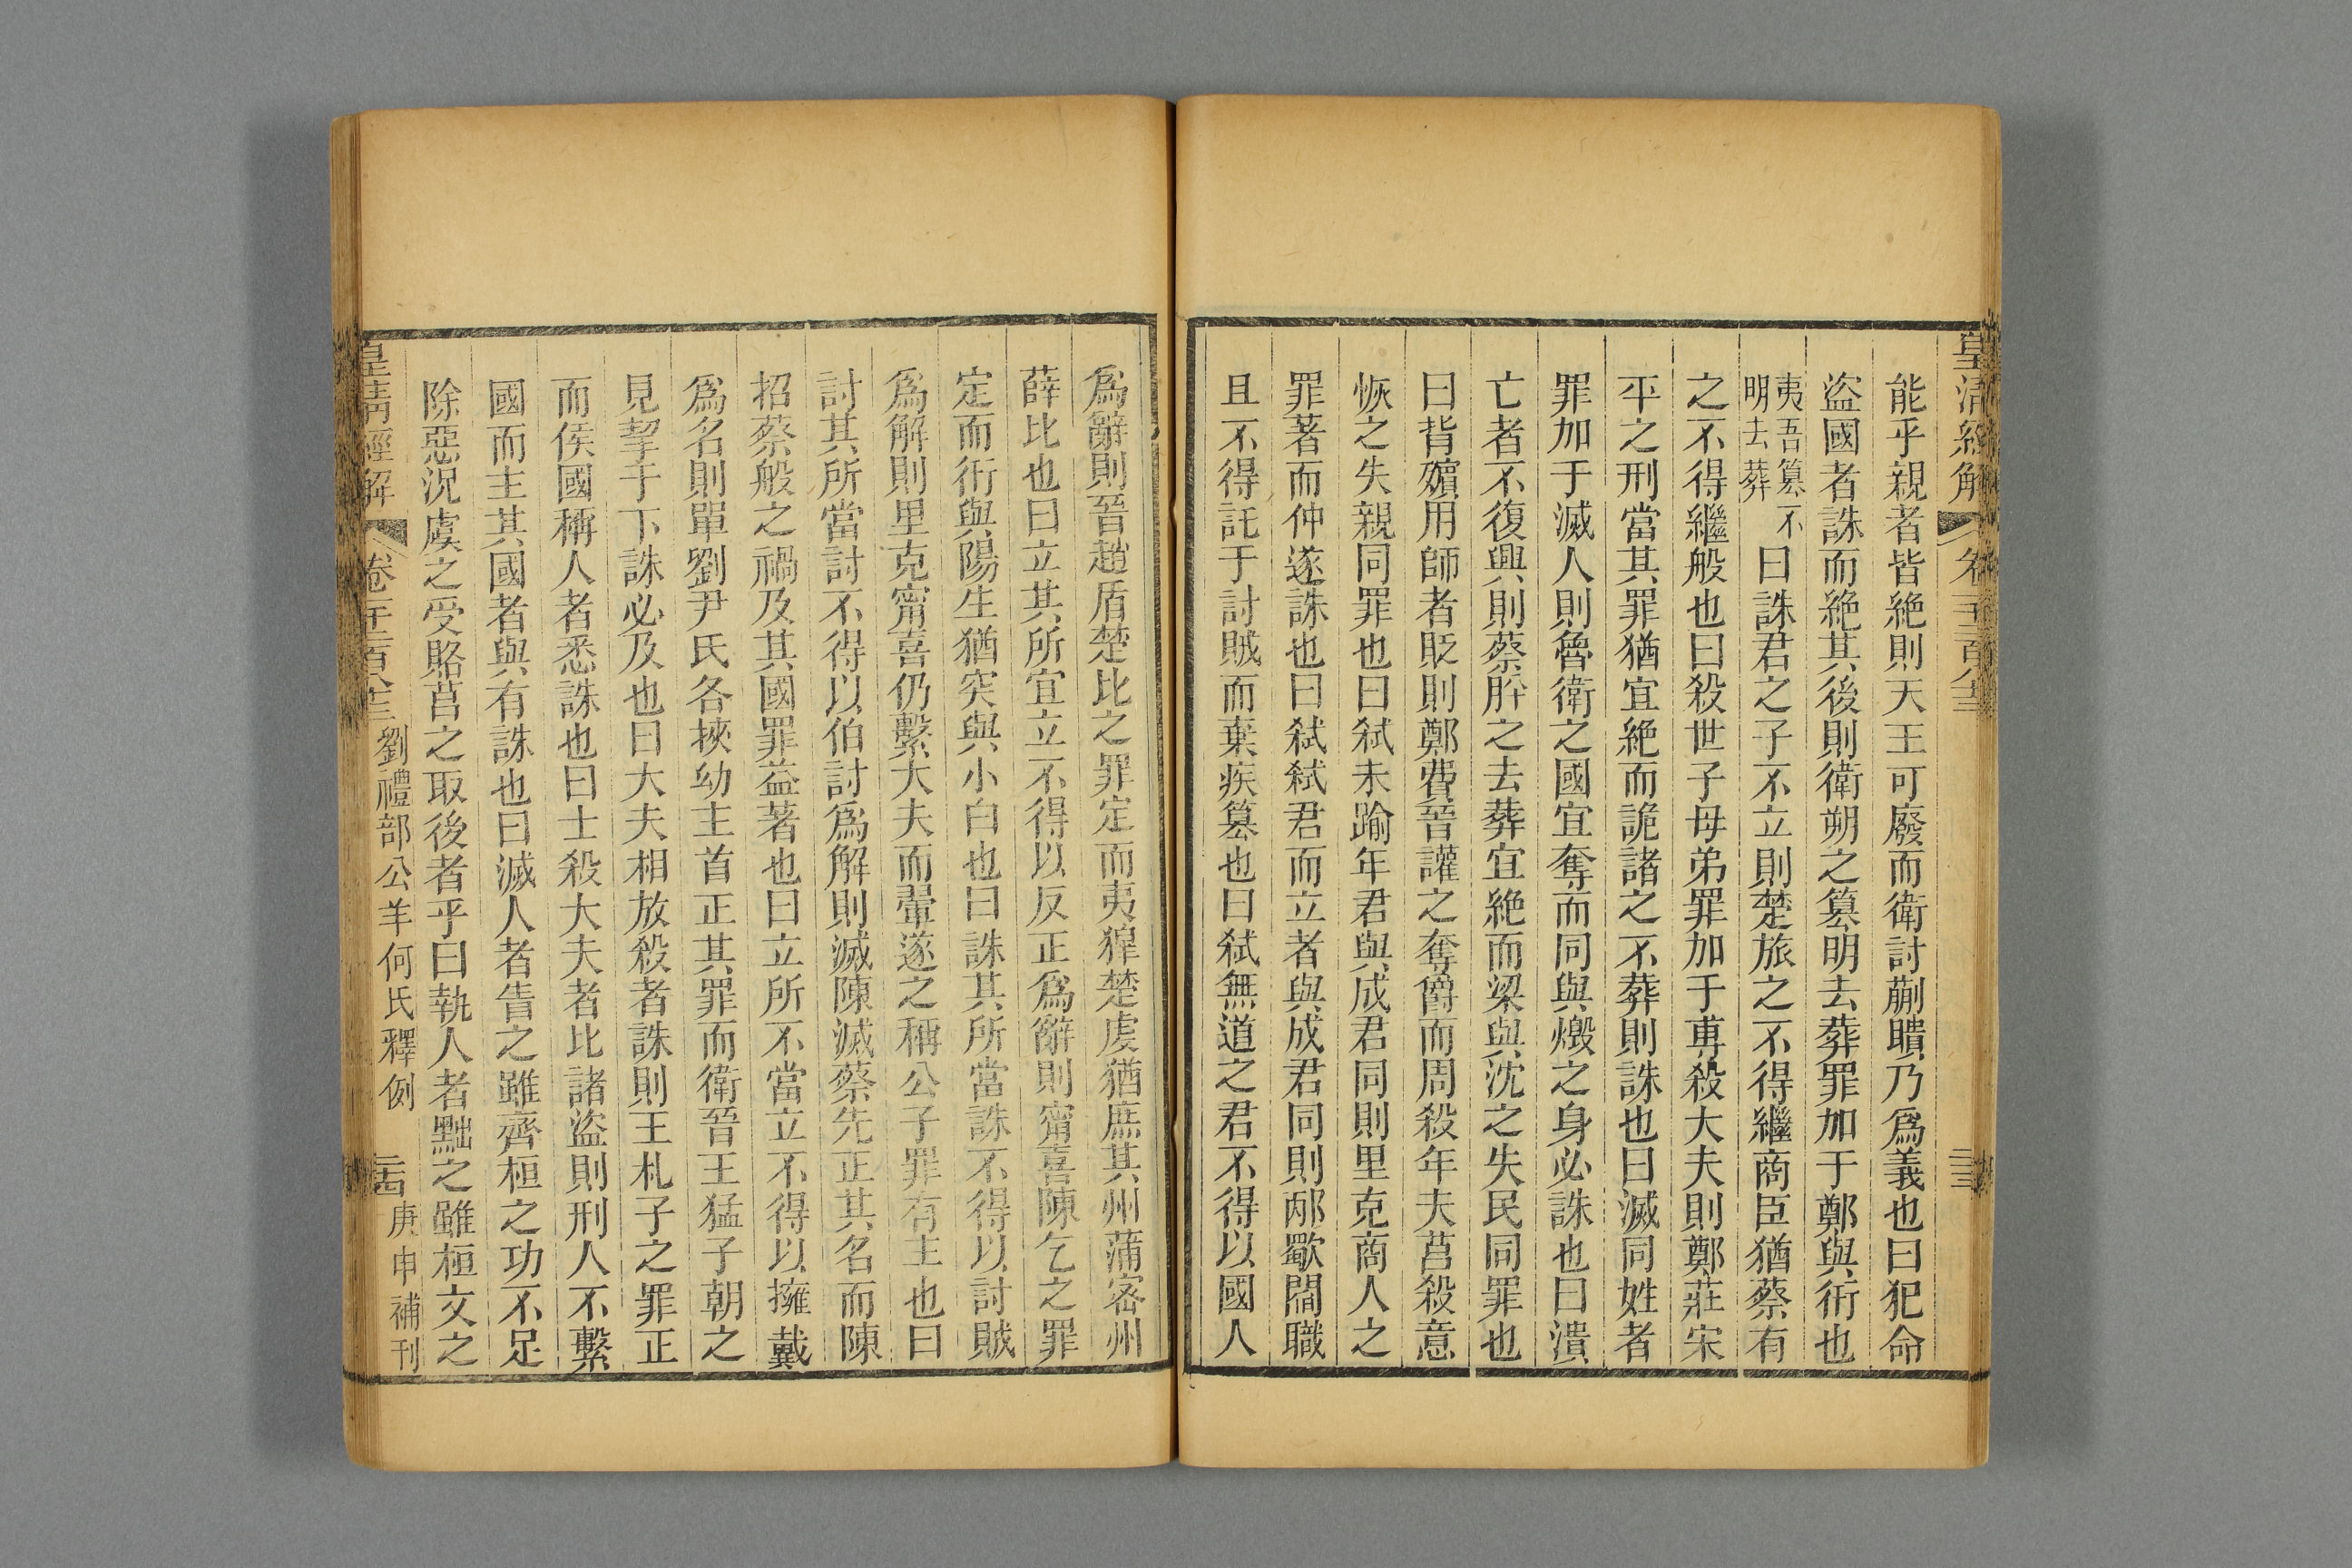 皇清經解 卷一千二百八十三 二十三
能乎親者皆絶則天王可廢而衛討蒯聵乃爲義也曰犯命
盜國者誅而絶其後則衛朔之篡明去葬罪加于鄭與衎也
夷吾篡不明去葬曰誅君之子不立則楚旅之不得繼商臣猶蔡有
之不得繼般也曰殺世子母弟罪加于專殺大夫則鄭莊宋
平之刑當其罪猶宜絶而詭諸之不葬則誅也曰滅同姓者
罪加于滅人則魯衛之國宜奪而同與燬之身必誅也曰潰
亡者不復興則蔡肸之去葬宜絶而梁與沈之失民同罪也
曰背殯用師者貶則鄭費晉讙之奪爵而周殺年夫莒殺意
恢之失親同罪也曰弑未踰年君與成君同則里克商人之
罪著而仲遂誅也曰弑弑君而立者與成君同則邴歜閻職
且不得託于討賊而棄疾篡也曰弑無道之君不得以國人
爲辭則晉趙盾楚比之罪定而夷獋楚虔猶庶其州蒲密州
薛比也曰立其所宜立不得以反正爲辭則甯喜陳乞之罪
定而衎與陽生猶突與小白也曰誅其所當誅不得以討賊
爲解則里克甯喜仍繫大夫而翬遂之稱公子罪有主也曰
討其所當討不得以伯討爲解則滅陳滅蔡先正其名而陳
招蔡般之禍及其國罪益著也曰立所不當立不得以擁戴
爲名則單劉尹氏各挾幼主首正其罪而衛晉王猛子朝之
見挈于下誅必及也曰大夫相放殺者誅則王札子之罪正
而侯國稱人者悉誅也曰士殺大夫者比諸盜則刑人不繫
國而主其國者與有誅也曰滅人者眚之雖齊桓之功不足
除惡況虞之受賂莒之取後者乎曰執人者黜之雖桓文之
皇清經解 卷一千二百八十三 劉禮部公羊何氏釋例 二十四 庚申補刊